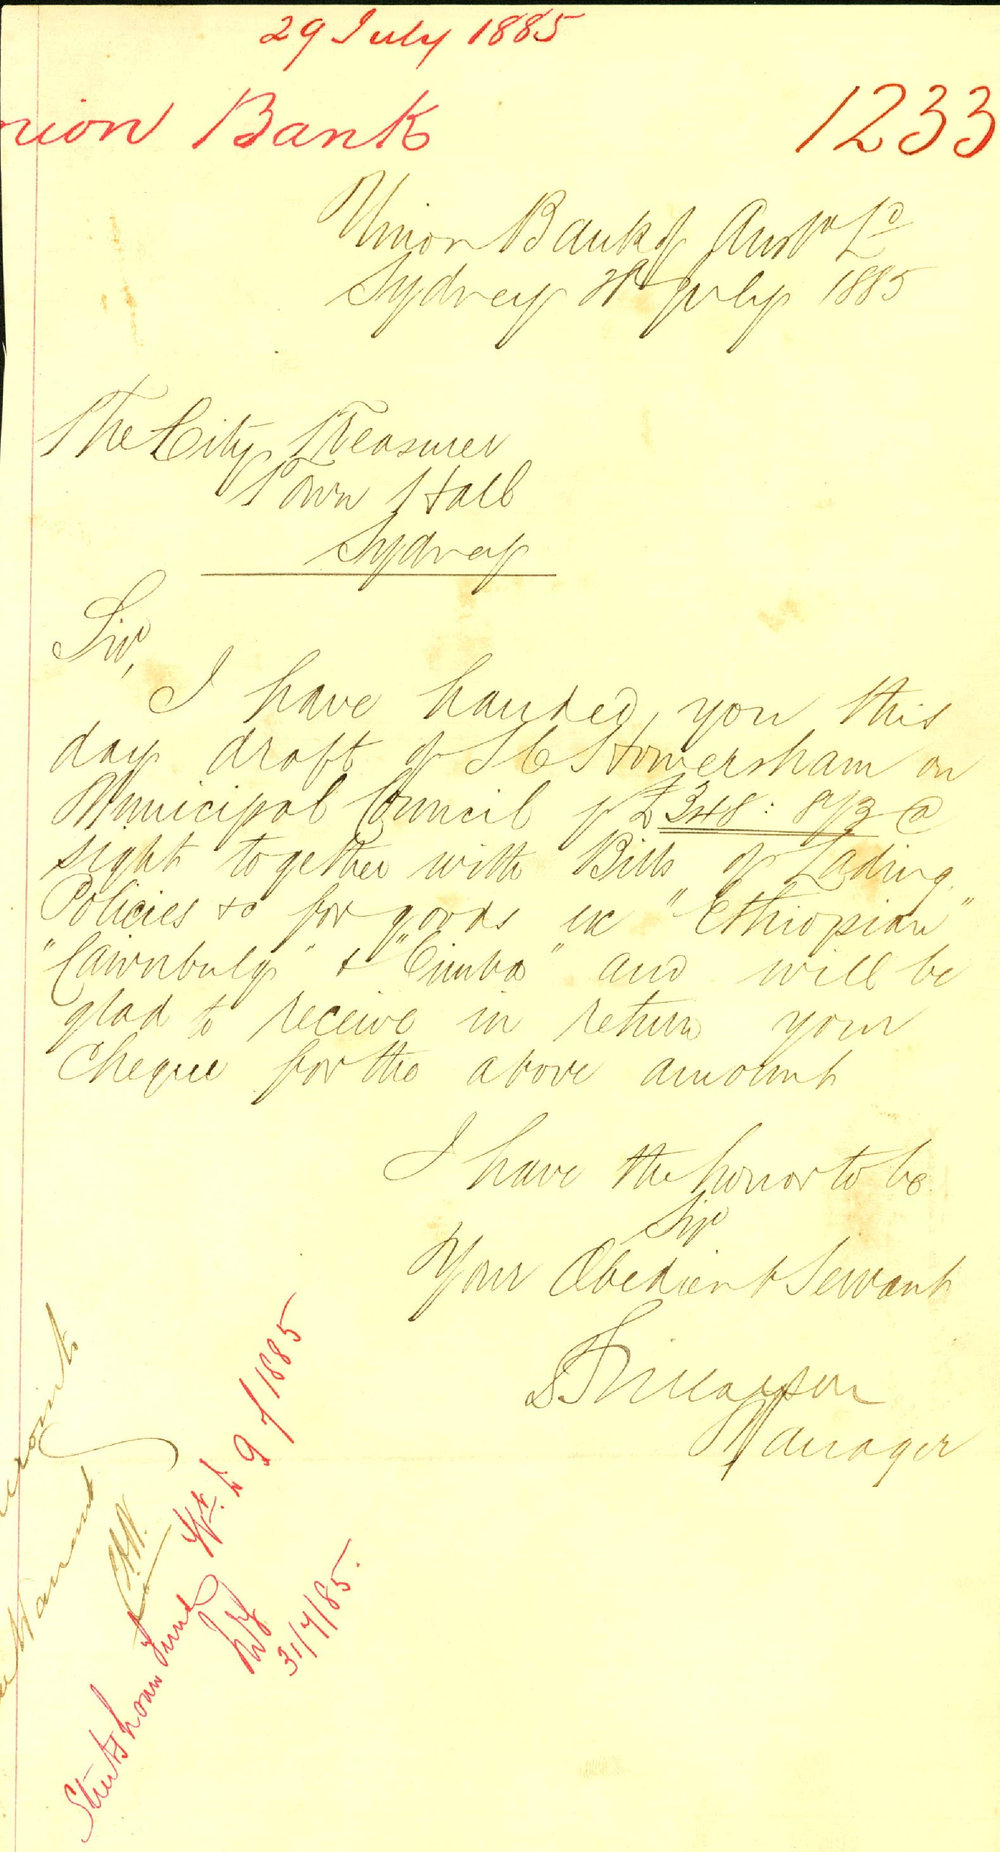 29 July 1885
nion Bank 1233
Union Bank of Aust. Ld
Sydney July 1885
The City Treasurer
Town Hall
Sydney
Sir,
I have handed you this
day draft of on
Municipal Council for £348: 8/3 @
sight together with Bills of Lading
Policies &c for goods ex "Ethiopian"
"Cairnbulg" & "Cimba" and will be
glad to receive in return your
Cheque for the above amount
I have the honor to be
Sir
Your Obedient Servant
Manager
Warrant
Streets Loan Fund Wt. No 9 of 1885
31/7/85.